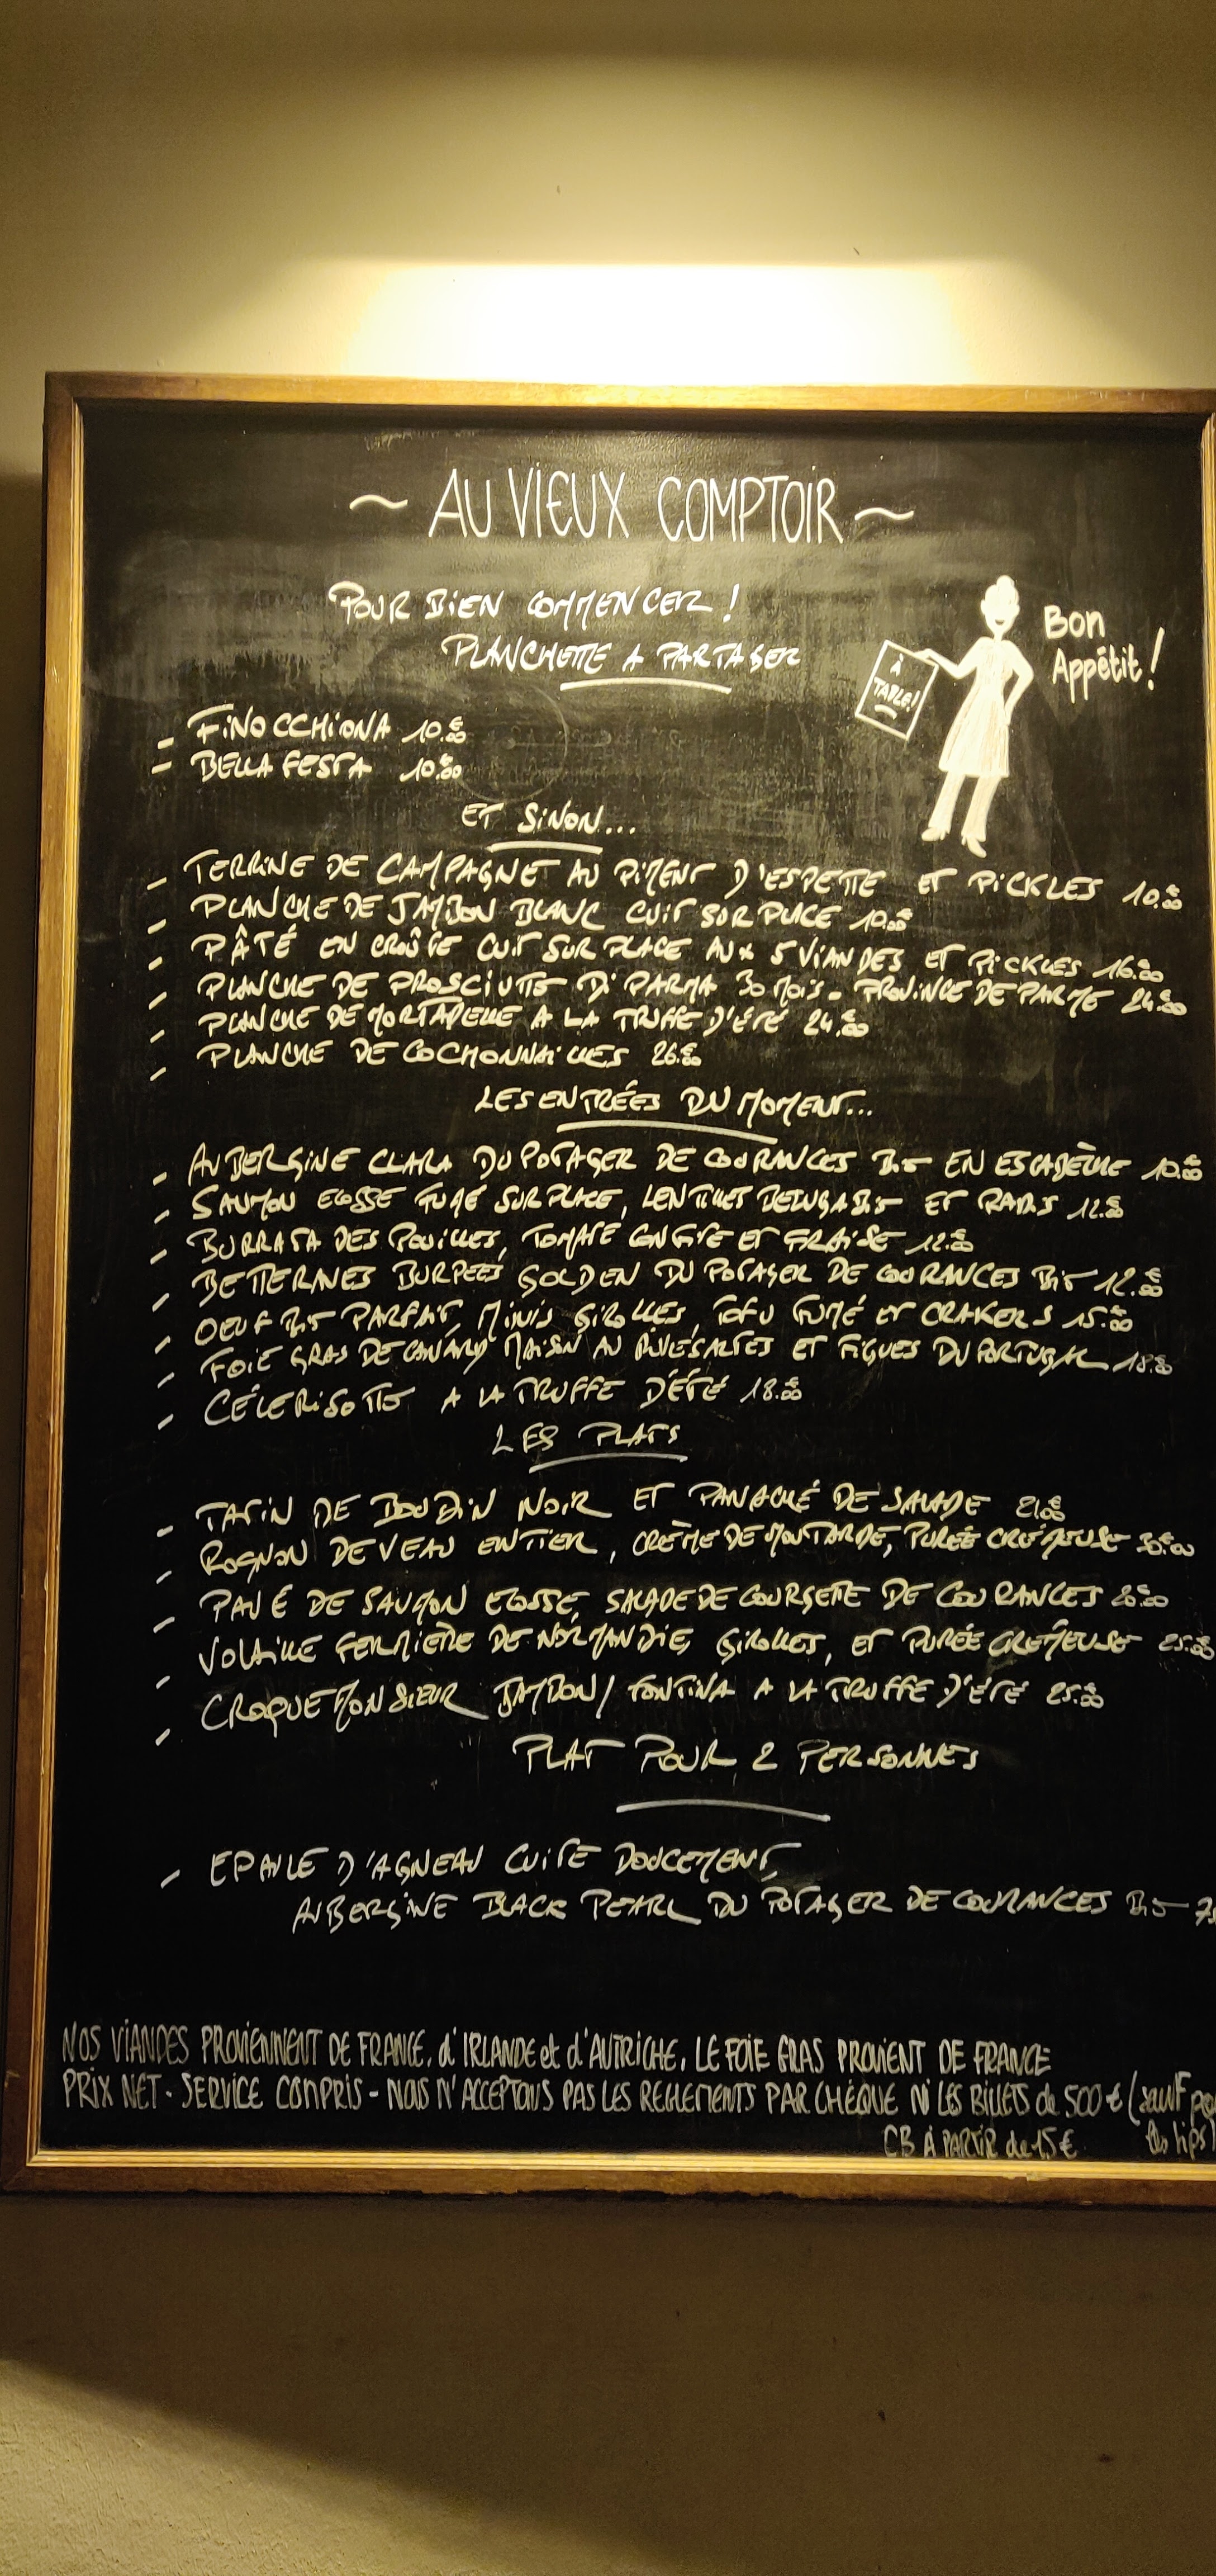 ~ AU VIEUX COMPTOIR ~
POUR BIEN COMMENCER !
PLANCHETTE A PARTAGER
Bon
Appétit !
À
TABLE !
- FINOCCHIONA 10.€00
- BELLA FESTA 10.€00
ET SINON...
- TERRINE DE CAMPAGNE AU PIMENT D'ESPELETTE ET PICKLES 10.€00
- PLANCHE DE JAMBON BLANC CUIT SUR PLACE 10.€00
- PÂTÉ EN CROÛTE CUIT SUR PLACE AUX 5 VIANDES ET PICKLES 16.€00
- PLANCHE DE PROSCIUTTO DI PARMA 30 MOIS - PROVINCE DE PARME 24.€00
- PLANCHE DE MORTADELLE A LA TRUFFE D'ÉTÉ 24.€00
- PLANCHE DE COCHONNAILLES 26.€00
LES ENTRÉES DU MOMENT...
- AUBERGINE CLARA DU POTAGER DE COURANCES BIO EN ESCABÈCHE 10.€00
- SAUMON ECOSSE FUMÉ SUR PLACE, LENTILLES BELUGA BIO ET RADIS 12.€00
- BURRATA DES POUILLES, TOMATE CONFITE ET FRAISE 12.€00
- BETTERAVES BURPEES GOLDEN DU POTAGER DE COURANCES BIO 12.€00
- OEUF BIO PARFAIT, MINIS GIROLLES, TOFU FUMÉ ET CRAKERS 15.€00
- FOIE GRAS DE CANARD MAISON AU RIVESALTES ET FIGUES DU PORTUGAL 18.€00
- CÉLERISOTTO A LA TRUFFE D'ÉTÉ 18.€00
LES PLATS
- TATIN DE BOUDIN NOIR ET PANACHÉ DE SALADE 21.€00
- ROGNON DE VEAU ENTIER, CRÈME DE MOUTARDE, PURÉE CRÉMEUSE 30.€00
- PAVÉ DE SAUMON ECOSSE, SALADE DE COURGETTE DE COURANCES
- VOLAILLE FERMIÈRE DE NORMANDIE, GIROLLES, ET PURÉE CRÉMEUSE 25.€00
- CROQUE MONSIEUR JAMBON / FONTINA A LA TRUFFE D'ÉTÉ 25.€00
PLAT POUR 2 PERSONNES
- EPAULE D'AGNEAU CUITE DOUCEMENT,
AUBERGINE BLACK PEARL DU POTAGER DE COURANCES BIO
NOS VIANDES PROVIENNENT DE FRANCE, d'IRLANDE et d'AUTRICHE, LE FOIE GRAS PROVIENT DE FRANCE
PRIX NET - SERVICE COMPRIS - NOUS N'ACCEPTONS PAS LES REGLEMENTS PAR CHÈQUE NI LES BILLETS de 500 € (sauf
les tips)
CB À PARTIR de 15€